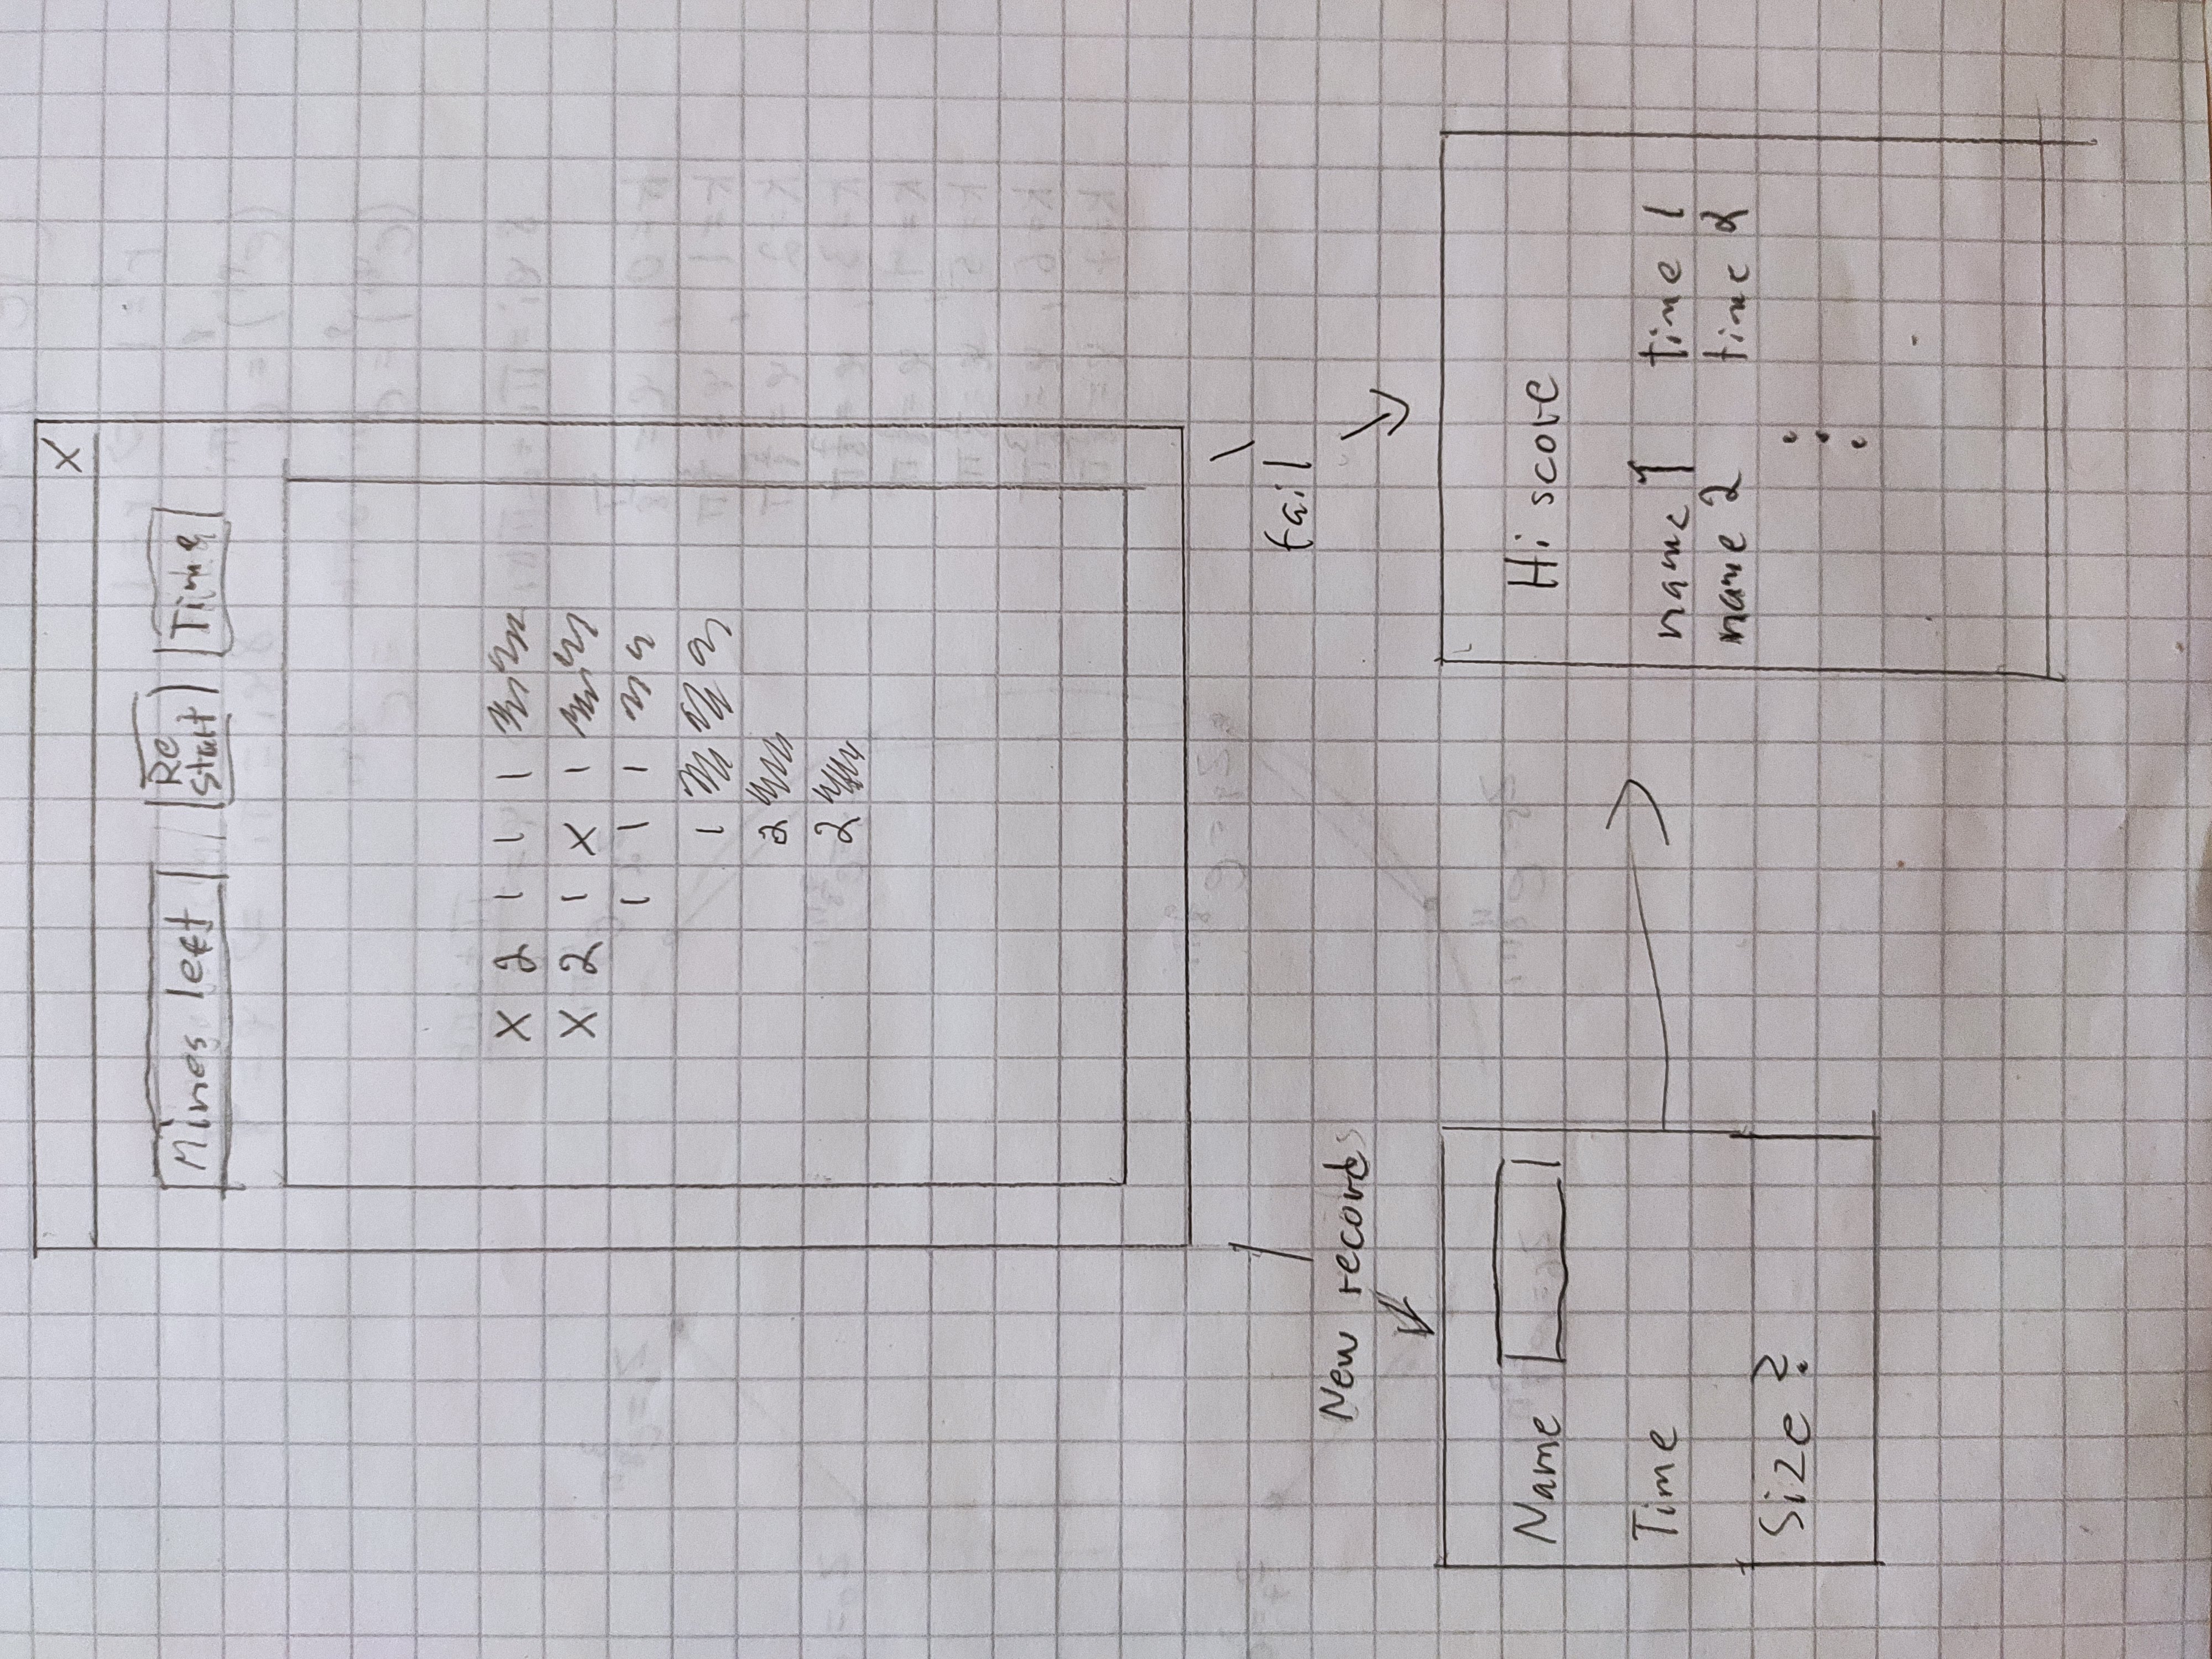 X
Mines left
Re
start
Time
X 2 1 1 1
X 2 1 X 1
1 1 1
1
2
2
New records
fail
Name
Time
Size ?
Hi score
name 1 time 1
name 2 time 2